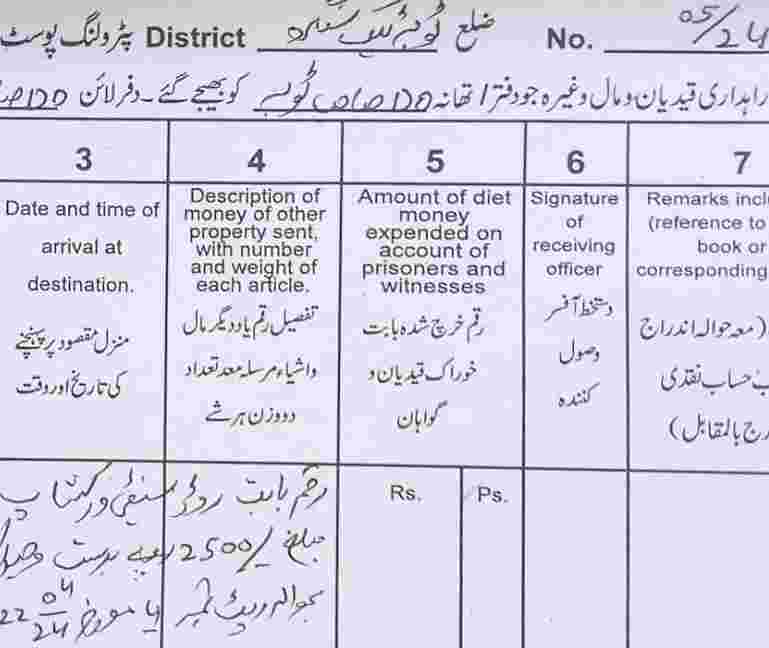 پٹرولنگ پوسٹ District ضلع ٹوبہ ٹیک سنگھ No. 05/24
راہداری قیدیان و مال وغیرہ جو دفتر / تھانہ کو بھیجے گئے۔ دفر لائن
3 4 5 6 7
Date and time of
arrival at
destination.
منزل مقصود پر پہنچنے
کی تاریخ اور وقت
Description of
money of other
property sent,
with number
and weight of
each article.
تفصیل رقم یا دیگر مال
و اشیاء مرسلہ معہ تعداد
و وزن ہر شے
Amount of diet
money
expended on
account of
prisoners and
witnesses
رقم خرچ شدہ بابت
خوراک قیدیان و
گواہان
Signature
of
receiving
officer
دستخط آفسر
وصول
کنندہ
Remarks incl
(reference to
book or
corresponding
(معہ حوالہ اندراج
حساب نقدی
بالمقابل)
Rs. Ps.
رقم بابت روڈ سیفٹی ورکشاپ
مبلغ /2500 روپے بدست
بحوالہ رپٹ نمبر مورخہ 22 04/24